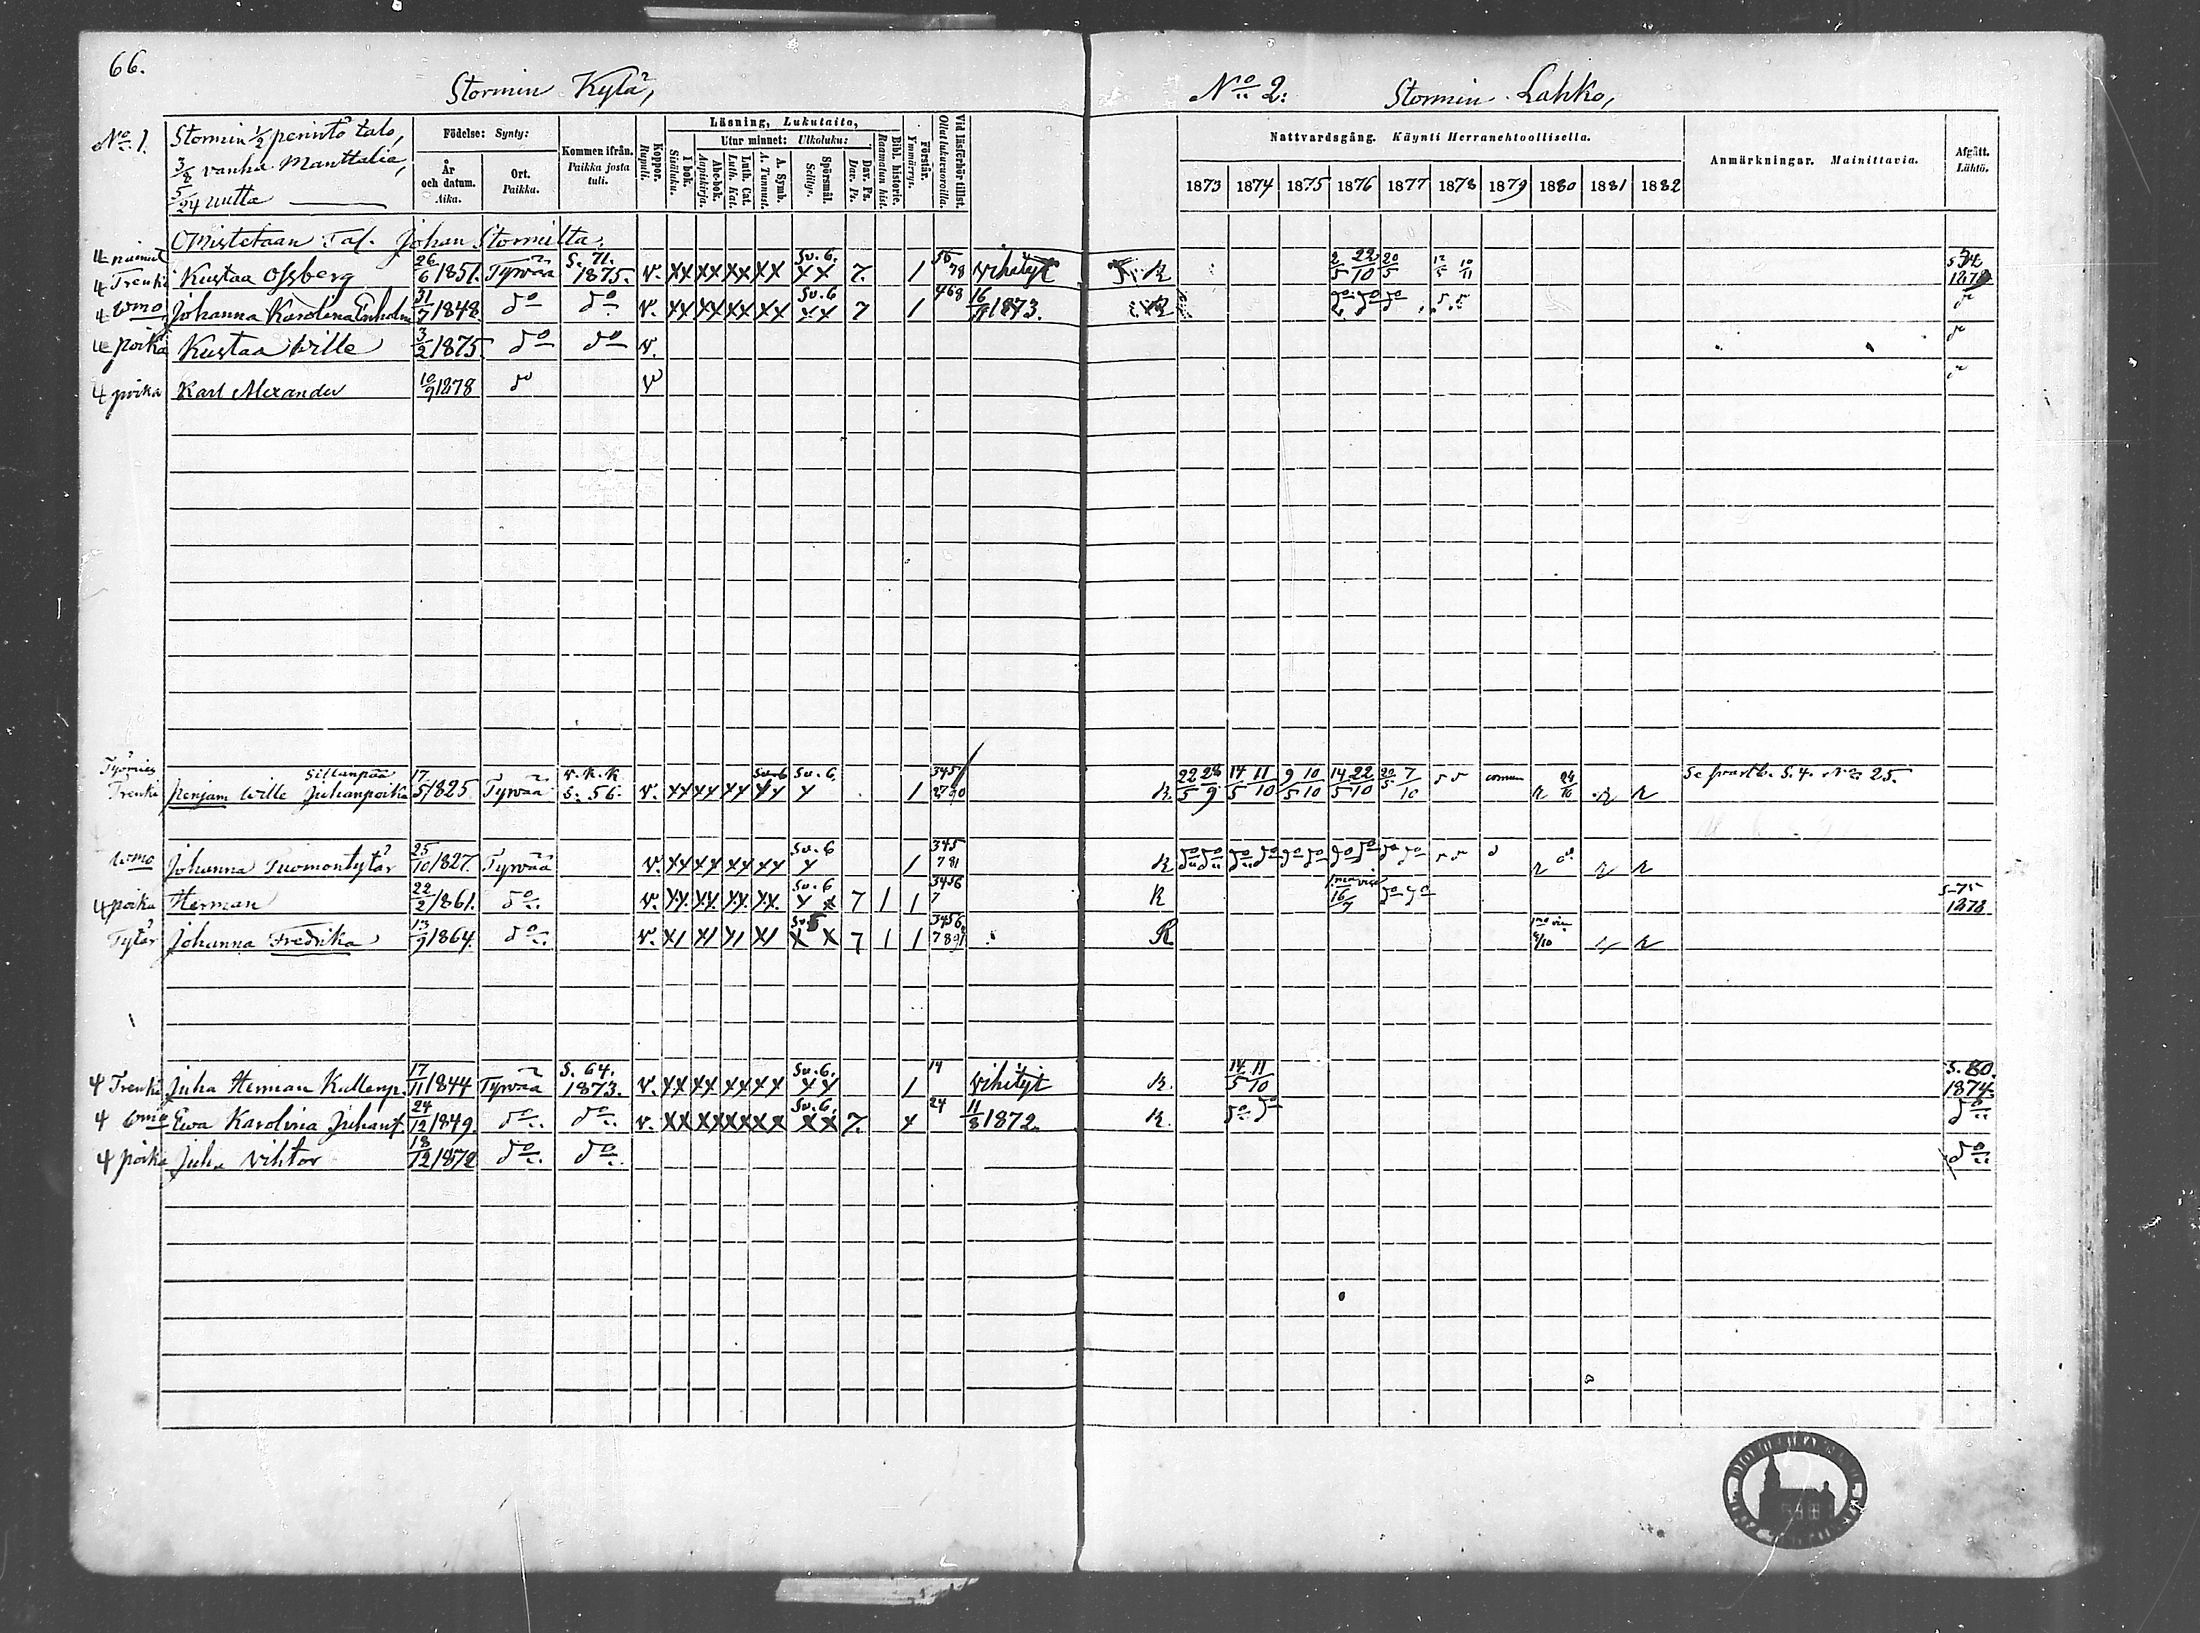 66.
Stormin Kylä,
No 2: Stormin Lahko,
No 1. Stormin 1/2 perintö talo,
3/8 vanha Manttalia,
5/24 uutta
Födelse: Synty:
År och datum. Aika.
Ort. Paikka.
Kommen ifrån. Paikka josta tuli.
Koppor. Rupuli.
Läsning, Lukutaito,
I bok. Sisäluku.
Utur minnet: Ulkoluku:
Abc-bok. Aapiskirja.
Luth. Cat. Luth. Kat.
A. Symb. A. Tunnust.
Spörsmål. Selitys.
Dav. Ps. Dav. Ps.
Bibl. historie. Raamatun hist.
Förstår. Ymmärrys.
Vid läsförhör tillst. Ollut lukuvuoroilla.
Nattvardsgång. Käynti Herranehtoollisella.
1873 1874 1875 1876 1877 1878 1879 1880 1881 1882
Anmärkningar. Mainittavia.
Afgått. Lähtö.
Omistetaan Tal. Johan Stormilta.
4 Trenki Kustaa Ossberg 26/6 1851. Tyrvää S. 71. 1875. v. xx xx xx xx Sv. 6. xx 7. 1 vihityt R 2/5 22/10 20/5 1878
4 wmo Johanna Karolina Enholm 31/7 1848. do do v. xx xx xx xx Sv. 6 xx 7 1 468 16/11 1873. R do do do
4 poika Kustaa Wille 3/2 1875. do do v.
4 poika Karl Alexander 10/9 1878 do v
Työmies Sillanpää
Trenki penjam Wille Juhanpoika 17/5 1825. Tyrvää v. k. k. S. 56. v. xx xx xx Sv. 6 xx Sv. 6. x 1 345 R. 22/5 28/9 14/5 11/10 9/5 10/10 14/5 22/10 20/5 7/10 S. 4. No 25.
wmo Johanna Tuomontytär 25/10 1827. Tyrvää v. xx xx xx xx Sv. 6 x 1 345 781 R do do do do do do do do do do
4 poika Herman 22/2 1861. do v. xx xx xx xx Sv. 6 x x 7 1 1 3456 7 R 16/7 do do S-75 1878
Tytär Johanna Fredrika 13/9 1864. do v. x1 x1 x1 x1 x x 7 1 1 3456 7891 R
4 Trenki Juha Herman Kallenp. 17/11 1844 Tyrvää S. 64. 1873. v. xx xx xx xx Sv. 6. xx 1 14 vihityt R. 14/5 11/10 S. 80. 1874.
4 wmo Ewa Karolina Juhant. 24/12 1849. do do v. xx xx xx xx Sv. 6. xx 7. x 24 11/8 1872. R. do do do
4 poika Juha Vihtor 18/12 1872 do do do